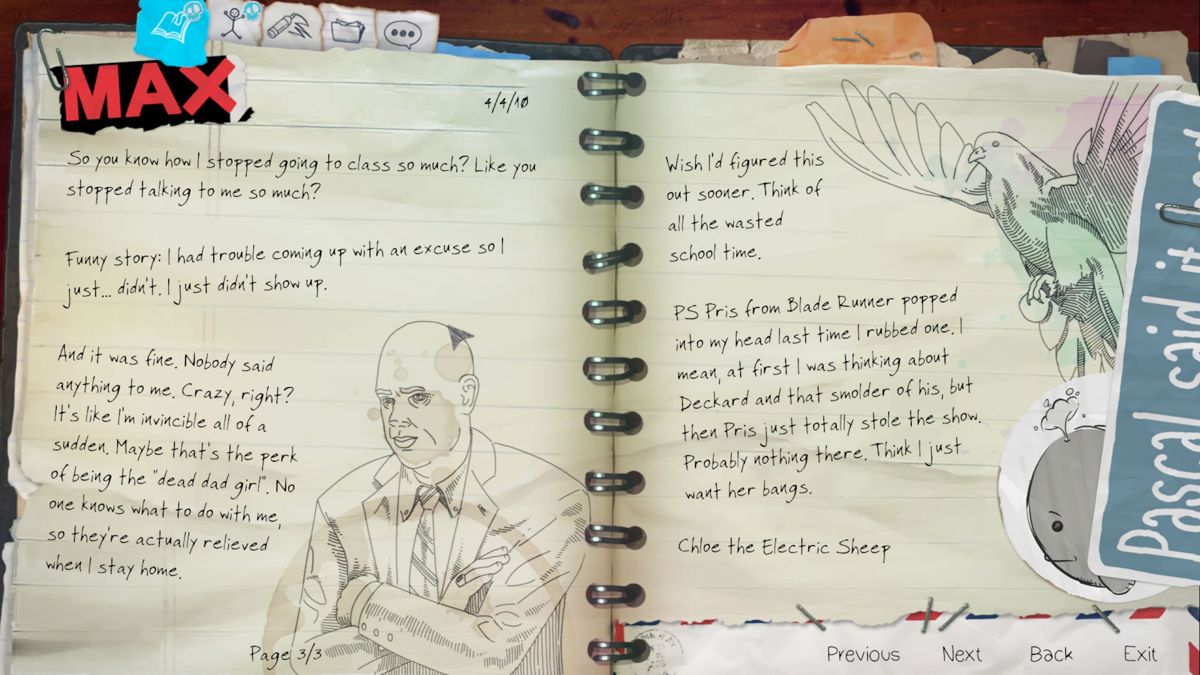 MAX
4/4/10
So you know how I stopped going to class so much? Like you
stopped talking to me so much?
Funny story: I had trouble coming up with an excuse so I
just... didn't. I just didn't show up.
And it was fine. Nobody said
anything to me. Crazy, right?
It's like I'm invincible all of a
sudden. Maybe that's the perk
of being the "dead dad girl". No
one knows what to do with me,
so they're actually relieved
when I stay home.
Page 3/3
Wish I'd figured this
out sooner. Think of
all the wasted
school time.
PS Pris from Blade Runner popped
into my head last time I rubbed one. I
mean, at first I was thinking about
Deckard and that smolder of his, but
then Pris just totally stole the show.
Probably nothing there. Think I just
want her bangs.
Chloe the Electric Sheep
Pascal said it
Previous
Next
Back
Exit